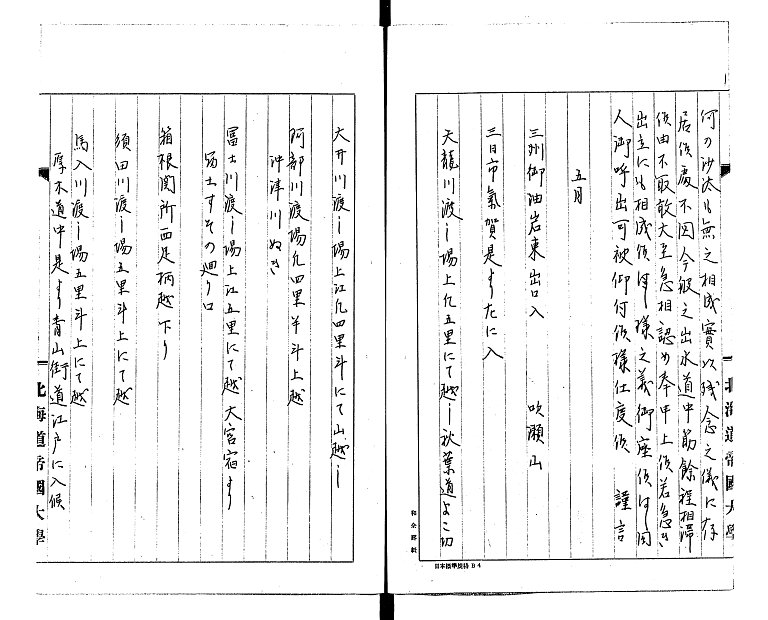 何の沙汰も無之相成實以残念之儀に存
居候處不図今般之出水道中筋餘程相滞
候由不取敢大至急相認め奉申上候若急き
出立にも相成候はゝ様之義御座候はゝ同
人御呼出可被仰付候様仕度候 謹言
五月
三州御油岩東出口入 吹瀬山
三日市氣賀是よりたに入
天龍川渡し場上凡五里にて越し秋葉道よこ切
大井川渡し場上江凡四里斗にて山越し
阿部川渡場凡四里半斗上越
沖津川ぬき
冨士川渡し場上江五里にて越大宮宿より
冨士すその廻り口
箱根関所西足柄越下り
須田川渡し場五里斗上にて越
馬入川渡し場五里斗上にて越
厚木道中是より青山街道江戸に入候
北海道帝國大學
北海道帝國大學
日本標準規格 B4